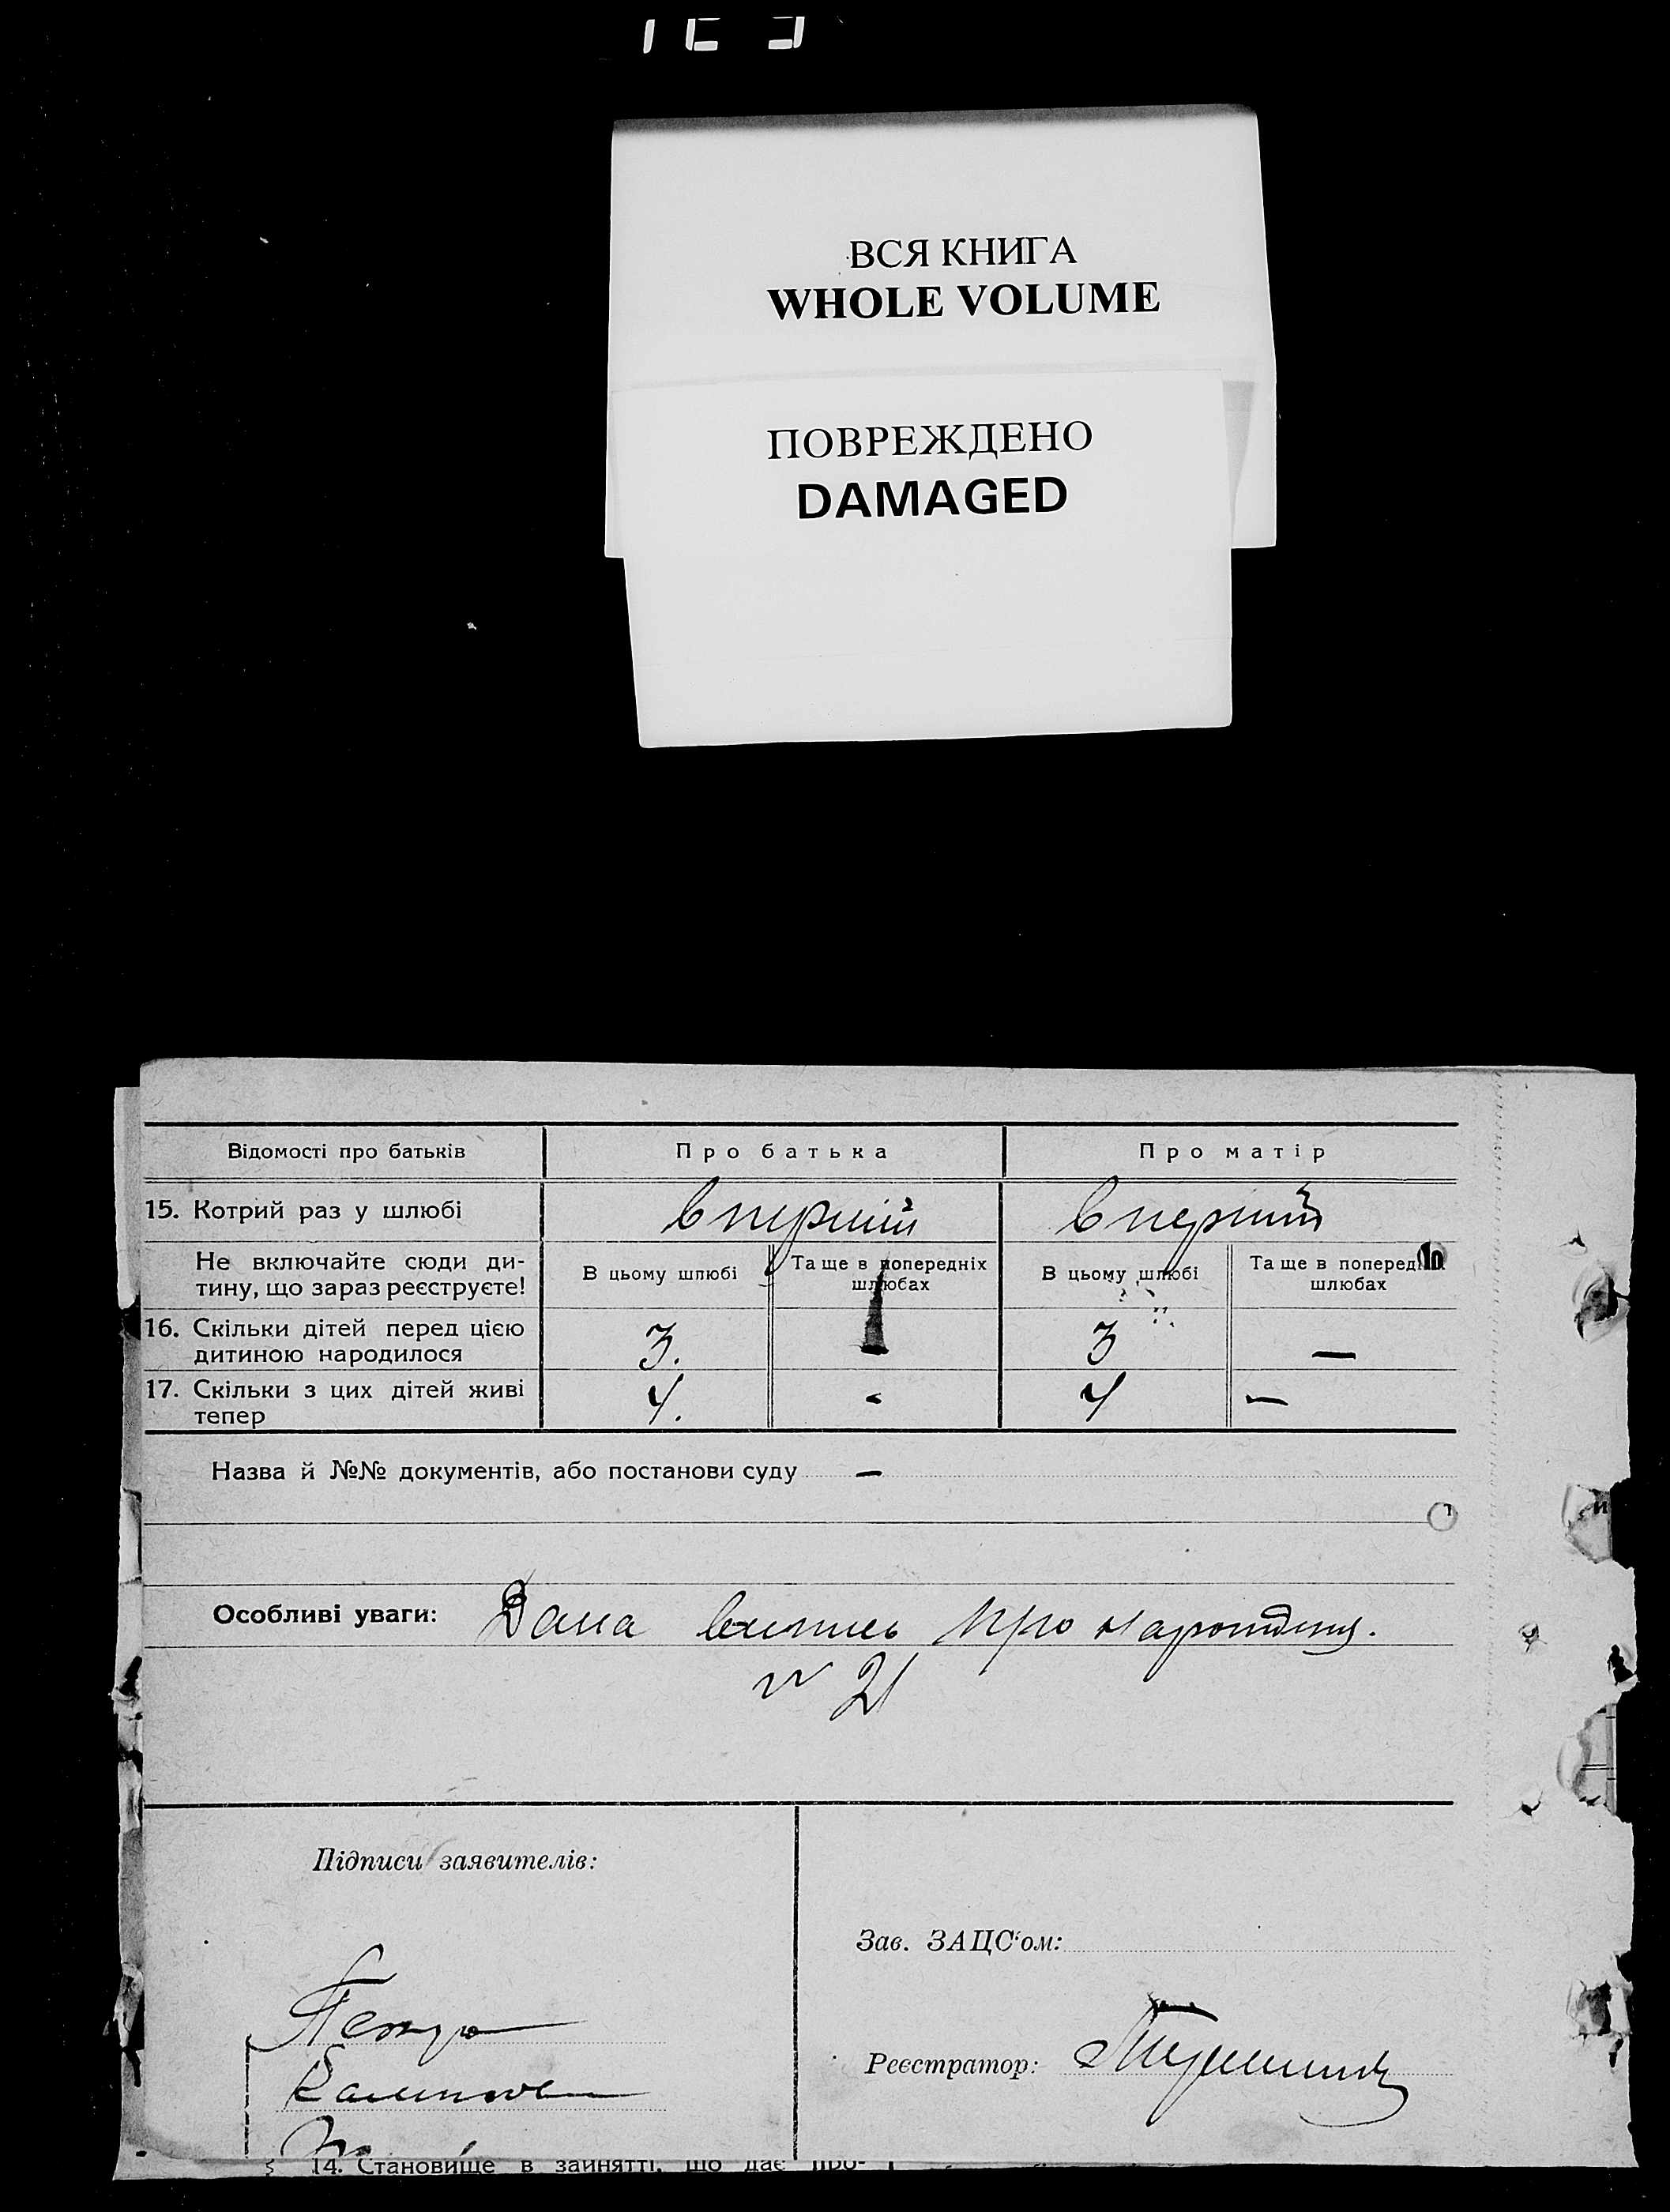 ВСЯ КНИГА
WHOLE VOLUME
ПОВРЕЖДЕНО
DAMAGED
Відомості про батьків Про батька Про матір
15. Котрий раз у шлюбі вперший вперший
Не включайте сюди ди-
тину, що зараз реєструєте!
В цьому шлюбі
Та ще в попередніх
шлюбах
В цьому шлюбі
Та ще в поперед
шлюбах
16. Скільки дітей перед цією
дитиною народилося
3. 3 —
17. Скільки з цих дітей живі
тепер
4. - 4 —
Назва й №№ документів, або постанови суду —
Особливі уваги: Дана випись про народження.
№ 21
Підписи заявителів:
Зав. ЗАЦС'ом:
Петро
Реєстратор:
14. Становище в занятті, що дає про-